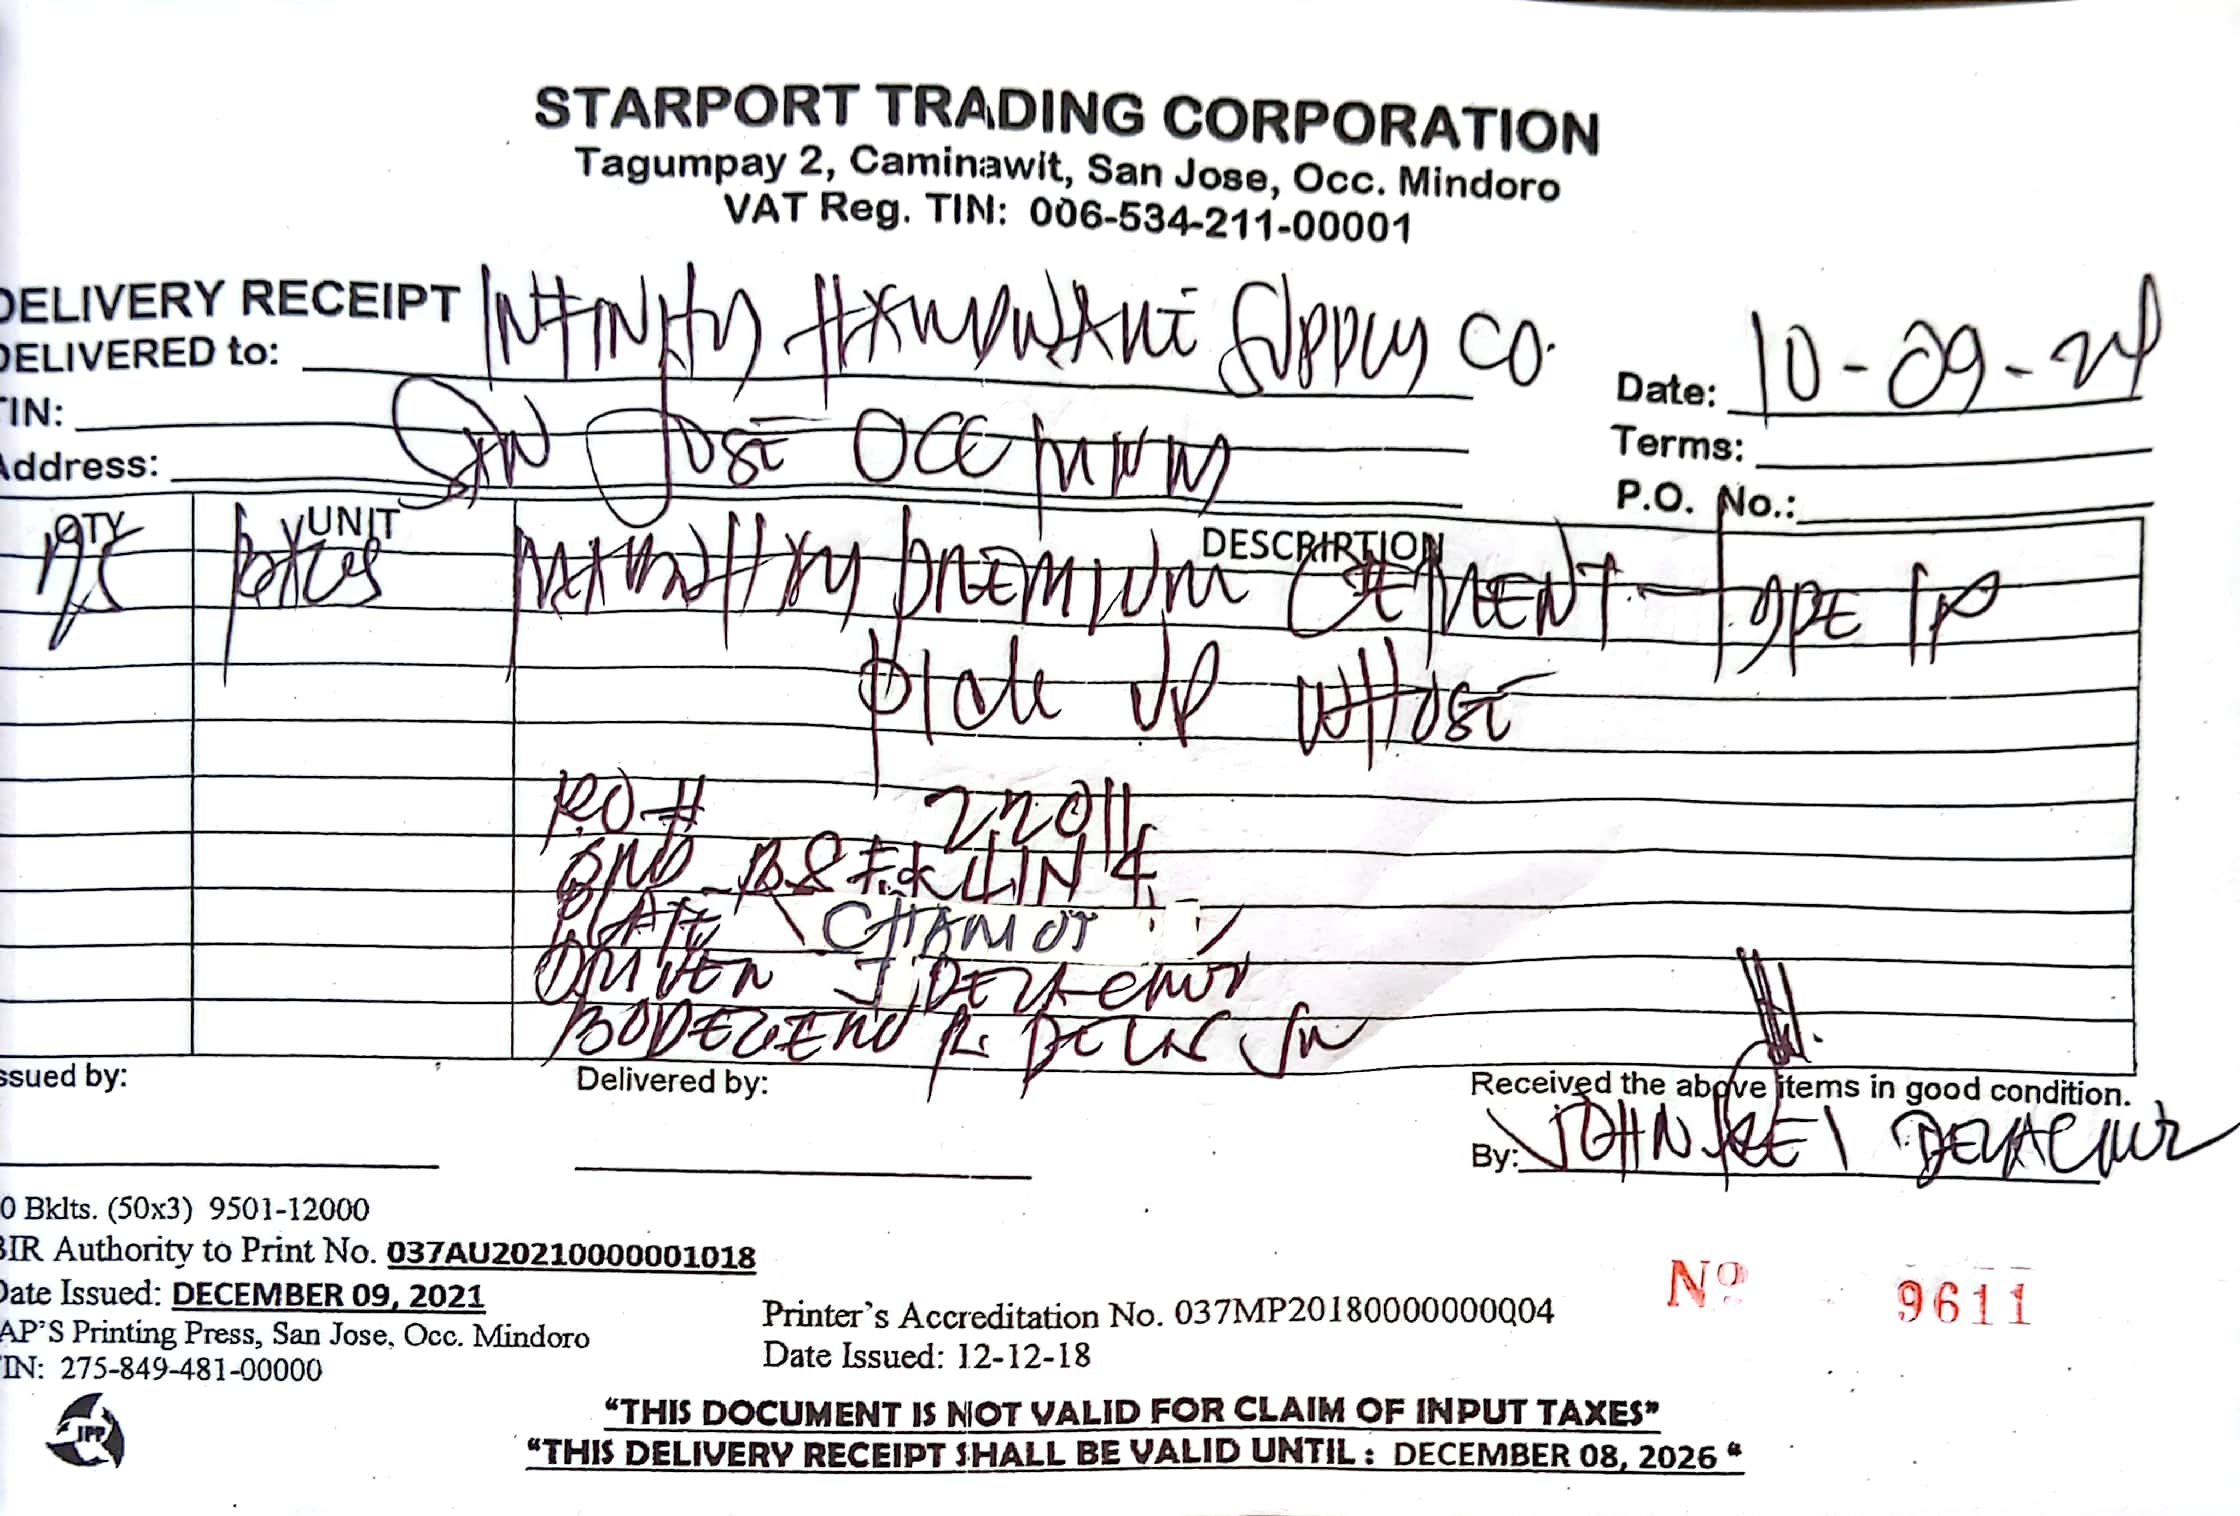 STARPORT TRADING CORPORATION
Tagumpay 2, Caminawit, San Jose, Occ. Mindoro
VAT Reg. TIN: 006-534-211-00001
DELIVERY RECEIPT
DELIVERED to: INFINITY HARDWARE SUPPLY CO.
Date: 10-09-24
TIN:
Terms:
Address: SAN JOSE OCC MIN
P.O. No.:
QTY UNIT DESCRIPTION
PREMIUM CEMENT - TYPE 1P
PICK UP WHOSE
RO # 22011
PLATE CHAMOT
DRIVER J. DELA CRUZ
BODEGERO R. JR
Issued by: Delivered by: Received the above items in good condition.
By: JOHN REI DELA CRUZ
0 Bklts. (50x3) 9501-12000
BIR Authority to Print No. 037AU20210000001018
Date Issued: DECEMBER 09, 2021
AP'S Printing Press, San Jose, Occ. Mindoro
TIN: 275-849-481-00000
Printer's Accreditation No. 037MP20180000000004
Date Issued: 12-12-18
Nº 9611
JPP
"THIS DOCUMENT IS NOT VALID FOR CLAIM OF INPUT TAXES"
"THIS DELIVERY RECEIPT SHALL BE VALID UNTIL : DECEMBER 08, 2026 "